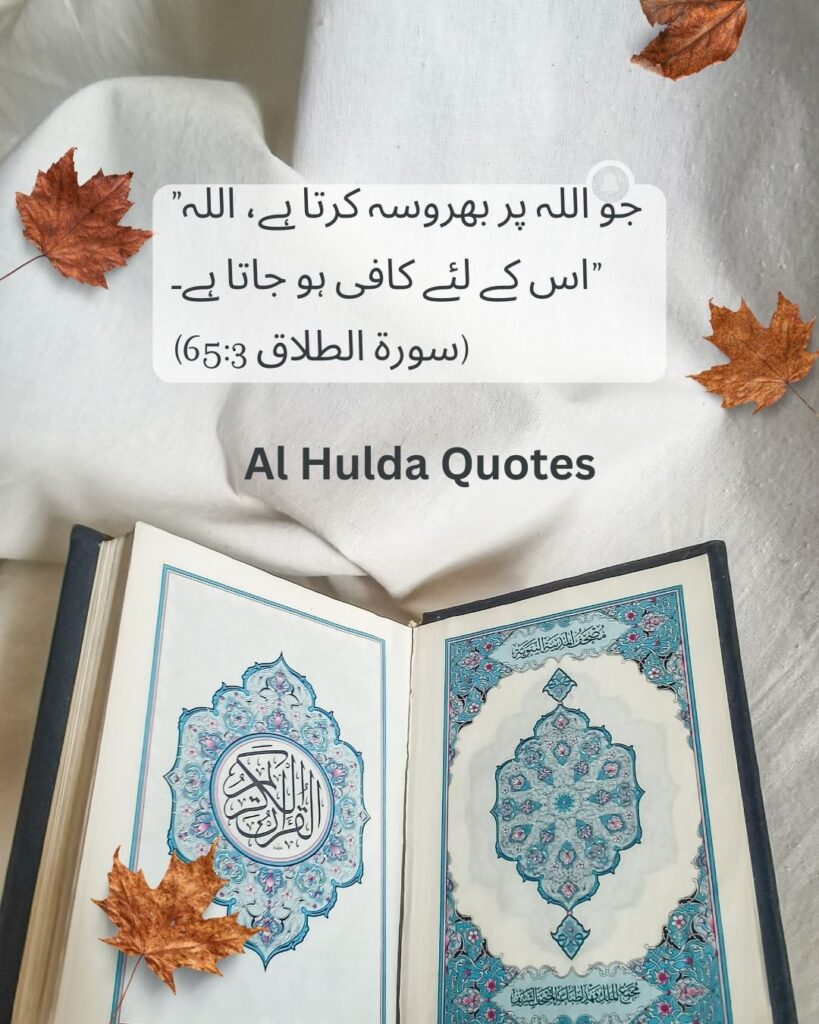 "جو اللہ پر بھروسہ کرتا ہے، اللہ
اس کے لئے کافی ہو جاتا ہے۔"
(سورة الطلاق 65:3)
Al Hulda Quotes
القرآن الكريم
مصحف المدينة النبوية
مجمع الملك فهد لطباعة المصحف الشريف